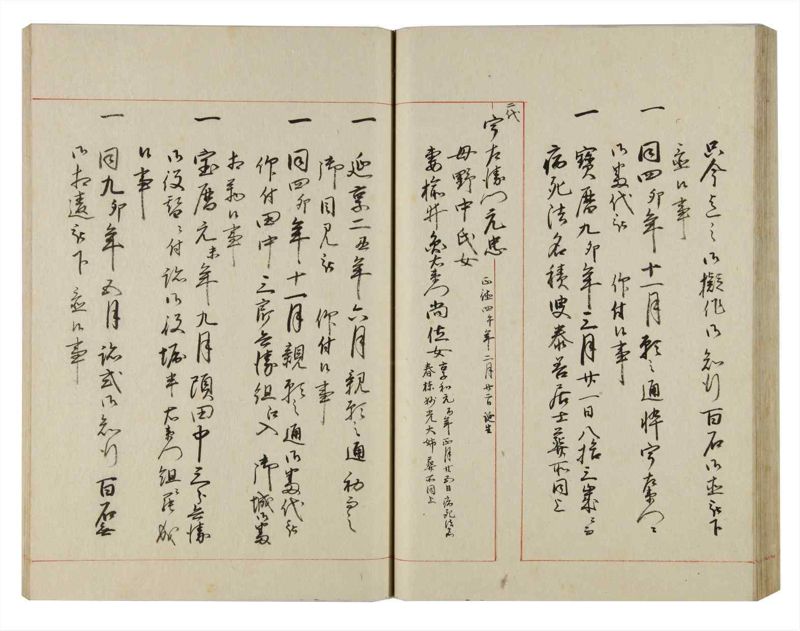 只今迄之御擬作御知行百石御直被下
（
置候事
一 同四卯年十一月願之通悴宇左衛門
御番代被 仰付候事
一 寶暦九卯年三月廿一日八拾三歳ニ而
病死法名積叟泰苔居士葬所同上
二代
宇左衛門元忠 正徳四午年二月廿日誕生
母野中氏女
妻 井 右衛門尚 女 享和元 年正月廿五日病死法名
春栋妙光大姉葬所同上
一 延享二丑年六月親願之通初而之
御目見被 仰付候事
一 同四卯年十一月親願之通御番代被
仰付田中三 兵衛組江入 御城御番
相勤候事
一 宝暦元未年九月頭田中三 兵衛
御役替ニ付 御役堀半右衛門組罷成
候事
一 同九卯年五月 式御知行百石無
御相違被下置候事